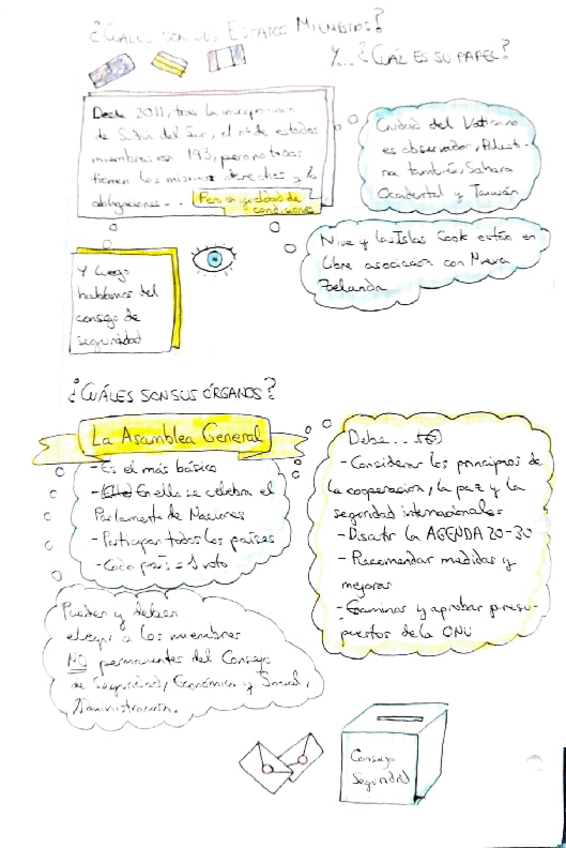 ¿CUÁLES SON SUS ESTADOS MIEMBROS?
Y... ¿CUÁL ES SU PAPEL?
Desde 2011, tras la incorporación
de Sudán del Sur, el nº de estados
miembros es 193, pero no todos
tienen los mismos derechos y la
obligaciones...
Pero en igualdad de
condiciones
Ciudad del Vaticano
es observador, Palesti-
na también, Sahara
Occidental y Taiwán
Niue y las Islas Cook están en
libre asociación con Nueva
Zelanda
Y luego
hablamos del
consejo de
seguridad
¿CUÁLES SON SUS ÓRGANOS?
La Asamblea General
- Es el más básico
- En ella se celebra el
Parlamento de Naciones
- Participan todos los países
- Cada país = 1 voto
Debe...
- Considerar los principios de
la cooperación, la paz y la
seguridad internacionales
- Discutir la AGENDA 20-30
- Recomendar medidas y
mejoras
- Examinar y aprobar presu-
puestos de la ONU
Pueden y deben
elegir a los miembros
NO permanentes del Consejo
de Seguridad, Económico y Social,
Administración.
Consejo
Seguridad